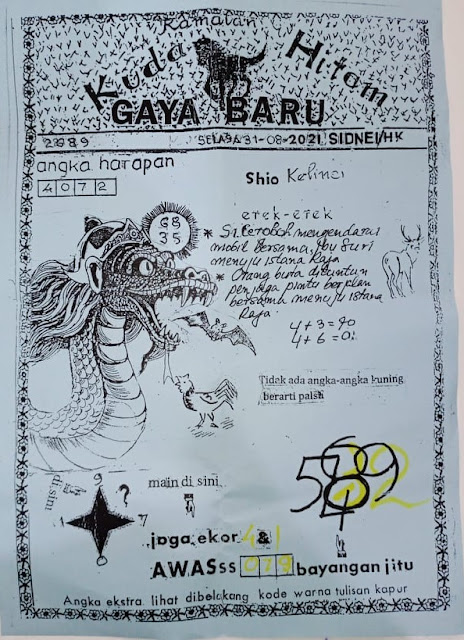 Ramalan
Kuda Hitam
GAYA BARU
2689
SELASA 31-08-2021 SIDNEI/HK
angka harapan
4072
Shio Kelinci
erek-erek
68
35
* Si Ceroboh mengendarai
mobil bersama, Ibu Suri
menuju Istana Raja
* Orang buta dituntun
penjaga pintu berjalan
bersama menuju Istana
Raja.
4+3=
4+6=
Tidak ada angka-angka kuning
berarti palsu
di sini
9
?
7
0
main di sini
joga ekor 4 & 1
AWASss 019 bayangan jitu
Angka ekstra lihat dibelakang kode warna tulisan kapur